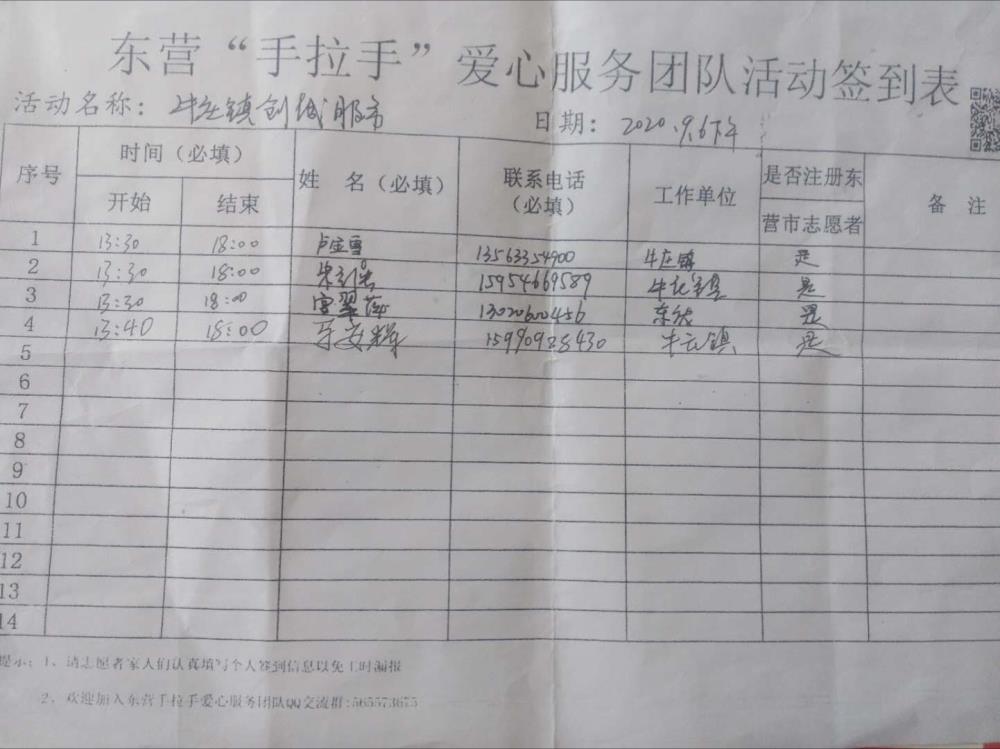 东营“手拉手”爱心服务团队活动签到表
活动名称：牛庄镇创城服务 日期：2020.9.6下午
序号 时间（必填） 姓 名（必填） 联系电话（必填） 工作单位 是否注册东营市志愿者 备 注
开始 结束
1 13:30 18:00 卢宝雪 13563354900 牛庄镇 是
2 13:30 18:00 15954669589 是
3 13:30 18:00 宫翠萍 13020600456 东 是
4 13:40 18:00 15990928430 牛庄镇 是
5
6
7
8
9
10
11
12
13
14
提示：1、请志愿者家人们认真填写个人签到信息以免工时漏报
2、欢迎加入东营手拉手爱心服务团队QQ交流群:565573675